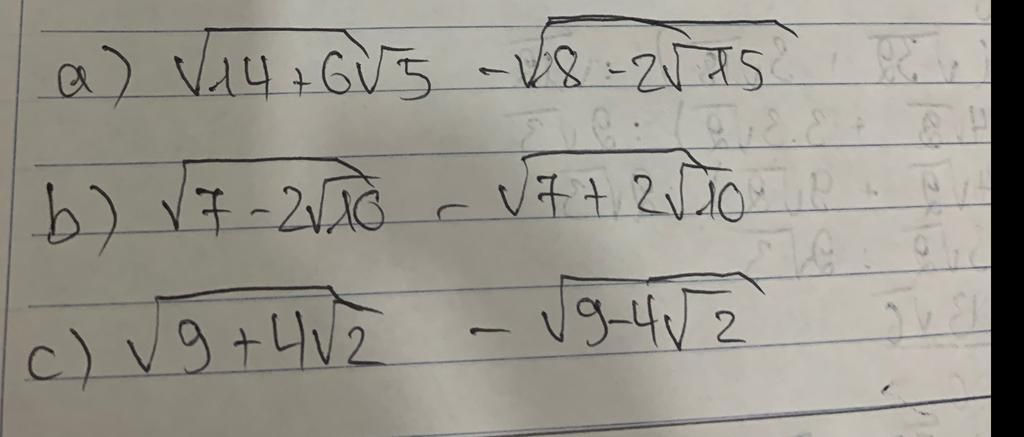 a) √14+6√5 - √8-2√15
b) √7-2√10 - √7+2√10
c) √9+4√2 - √9-4√2